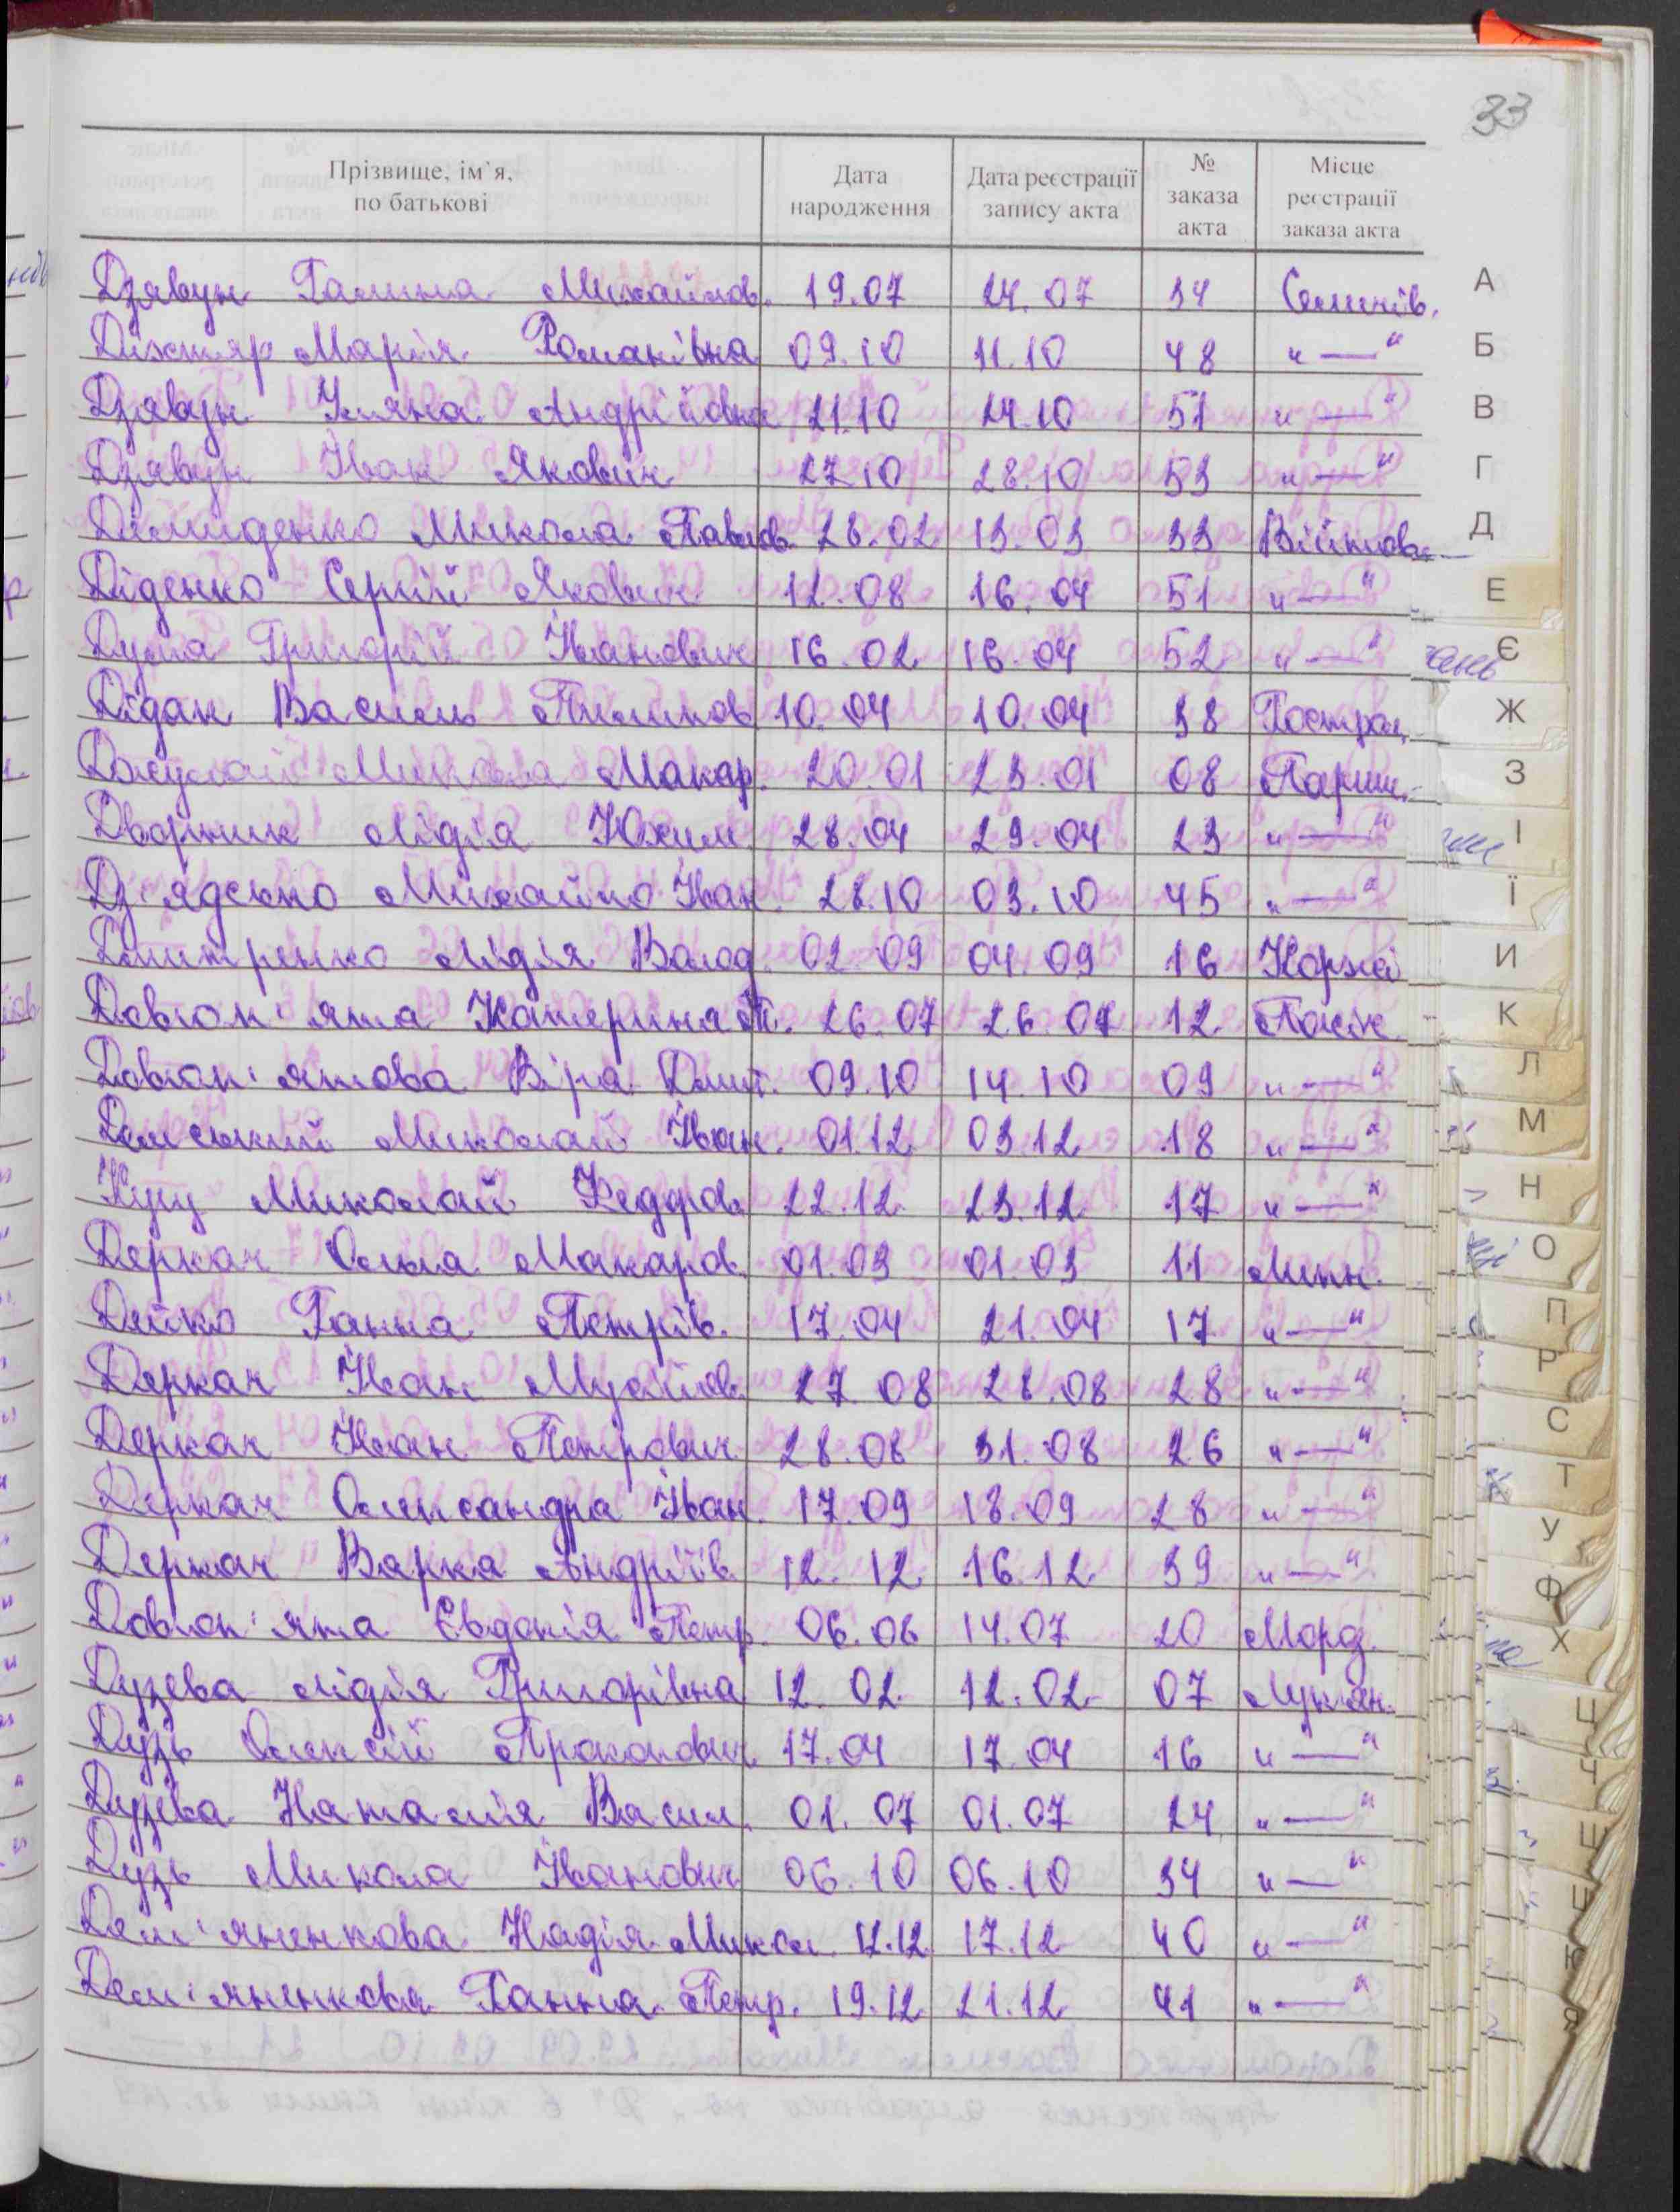 33
Прізвище, ім`я, по батькові | Дата народження | Дата реєстрації запису акта | № заказа акта | Місце реєстрації заказа акта
Дзявун Галина Михайлов. 19.07 24.07 34 Семенів.
Дихтяр Марія Романівна 09.10 11.10 48 "—"
Дзявун Уляна Андріївна 21.10 24.10 51 "—"
Дзявун Іван Якович 27.10 28.10 53 "—"
Демиденко Микола Павлов. 28.02 13.03 33 Війтов
Діденко Сергій Якович 12.08 16.04 51 "—"
Дума Григорій Іванович 16.02 16.04 52 "—"
Дідан Василь Пилипов 10.04 10.04 38
Джулай Микола Макар. 20.01 23.01 08 Париш.
Дворник Лідія Юхим. 28.04 29.04 23 "—"
Дз'яденко Михайло Іван. 28.10 03.10 45 "—"
Дмитренко Лідія Волод. 02.09 04.09 16 Коржі
Довгоп'ята Катерина П. 26.07 26.07 12
Довгоп'ятова Віра Дмит. 09.10 14.10 09 "—"
Демський Миколай Іван. 01.12 03.12 18 "—"
Куц Миколай Федоров 22.12 23.12 17 "—"
Деркач Ольга Макаров. 01.03 01.03 11 Липн.
Дейко Ганна Петрів. 17.04 21.04 17 "—"
Деркач Іван Мусійов. 27.08 28.08 28 "—"
Деркач Іван Петрович 28.08 31.08 26 "—"
Деркач Олександра Іван. 17.09 18.09 28 "—"
Деркач Варка Андріїв. 12.12 16.12 39 "—"
Довгоп'ята Євдокія Петр. 06.06 14.07 20 Морд.
Дузева Лідія Григорівна 12.02 12.02 07 Лук'ян.
Дузь Олексій Прокопович 17.04 17.04 16 "—"
Дузева Наталія Васил. 01.07 01.07 24 "—"
Дузь Микола Іванович 06.10 06.10 34 "—"
Дем'яненкова Надія Микол. 12.12 17.12 40 "—"
Дем'яненкова Ганна Петр. 19.12 21.12 41 "—"
А
Б
В
Г
Д
Е
Є
Ж
З
І
Ї
И
К
Л
М
Н
О
П
Р
С
Т
У
Ф
Х
Ц
Ч
Ю
Я